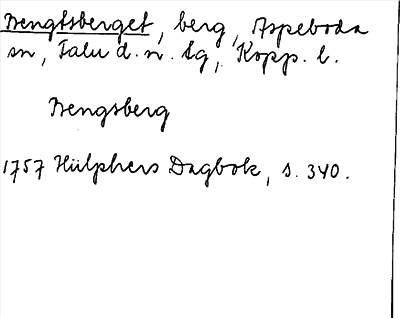 Bengtsberget, berg, Aspeboda
sn, Falu d. n. tg, Kopp. l.
Bengsberg
1757 Hülphers Dagbok, s. 340.